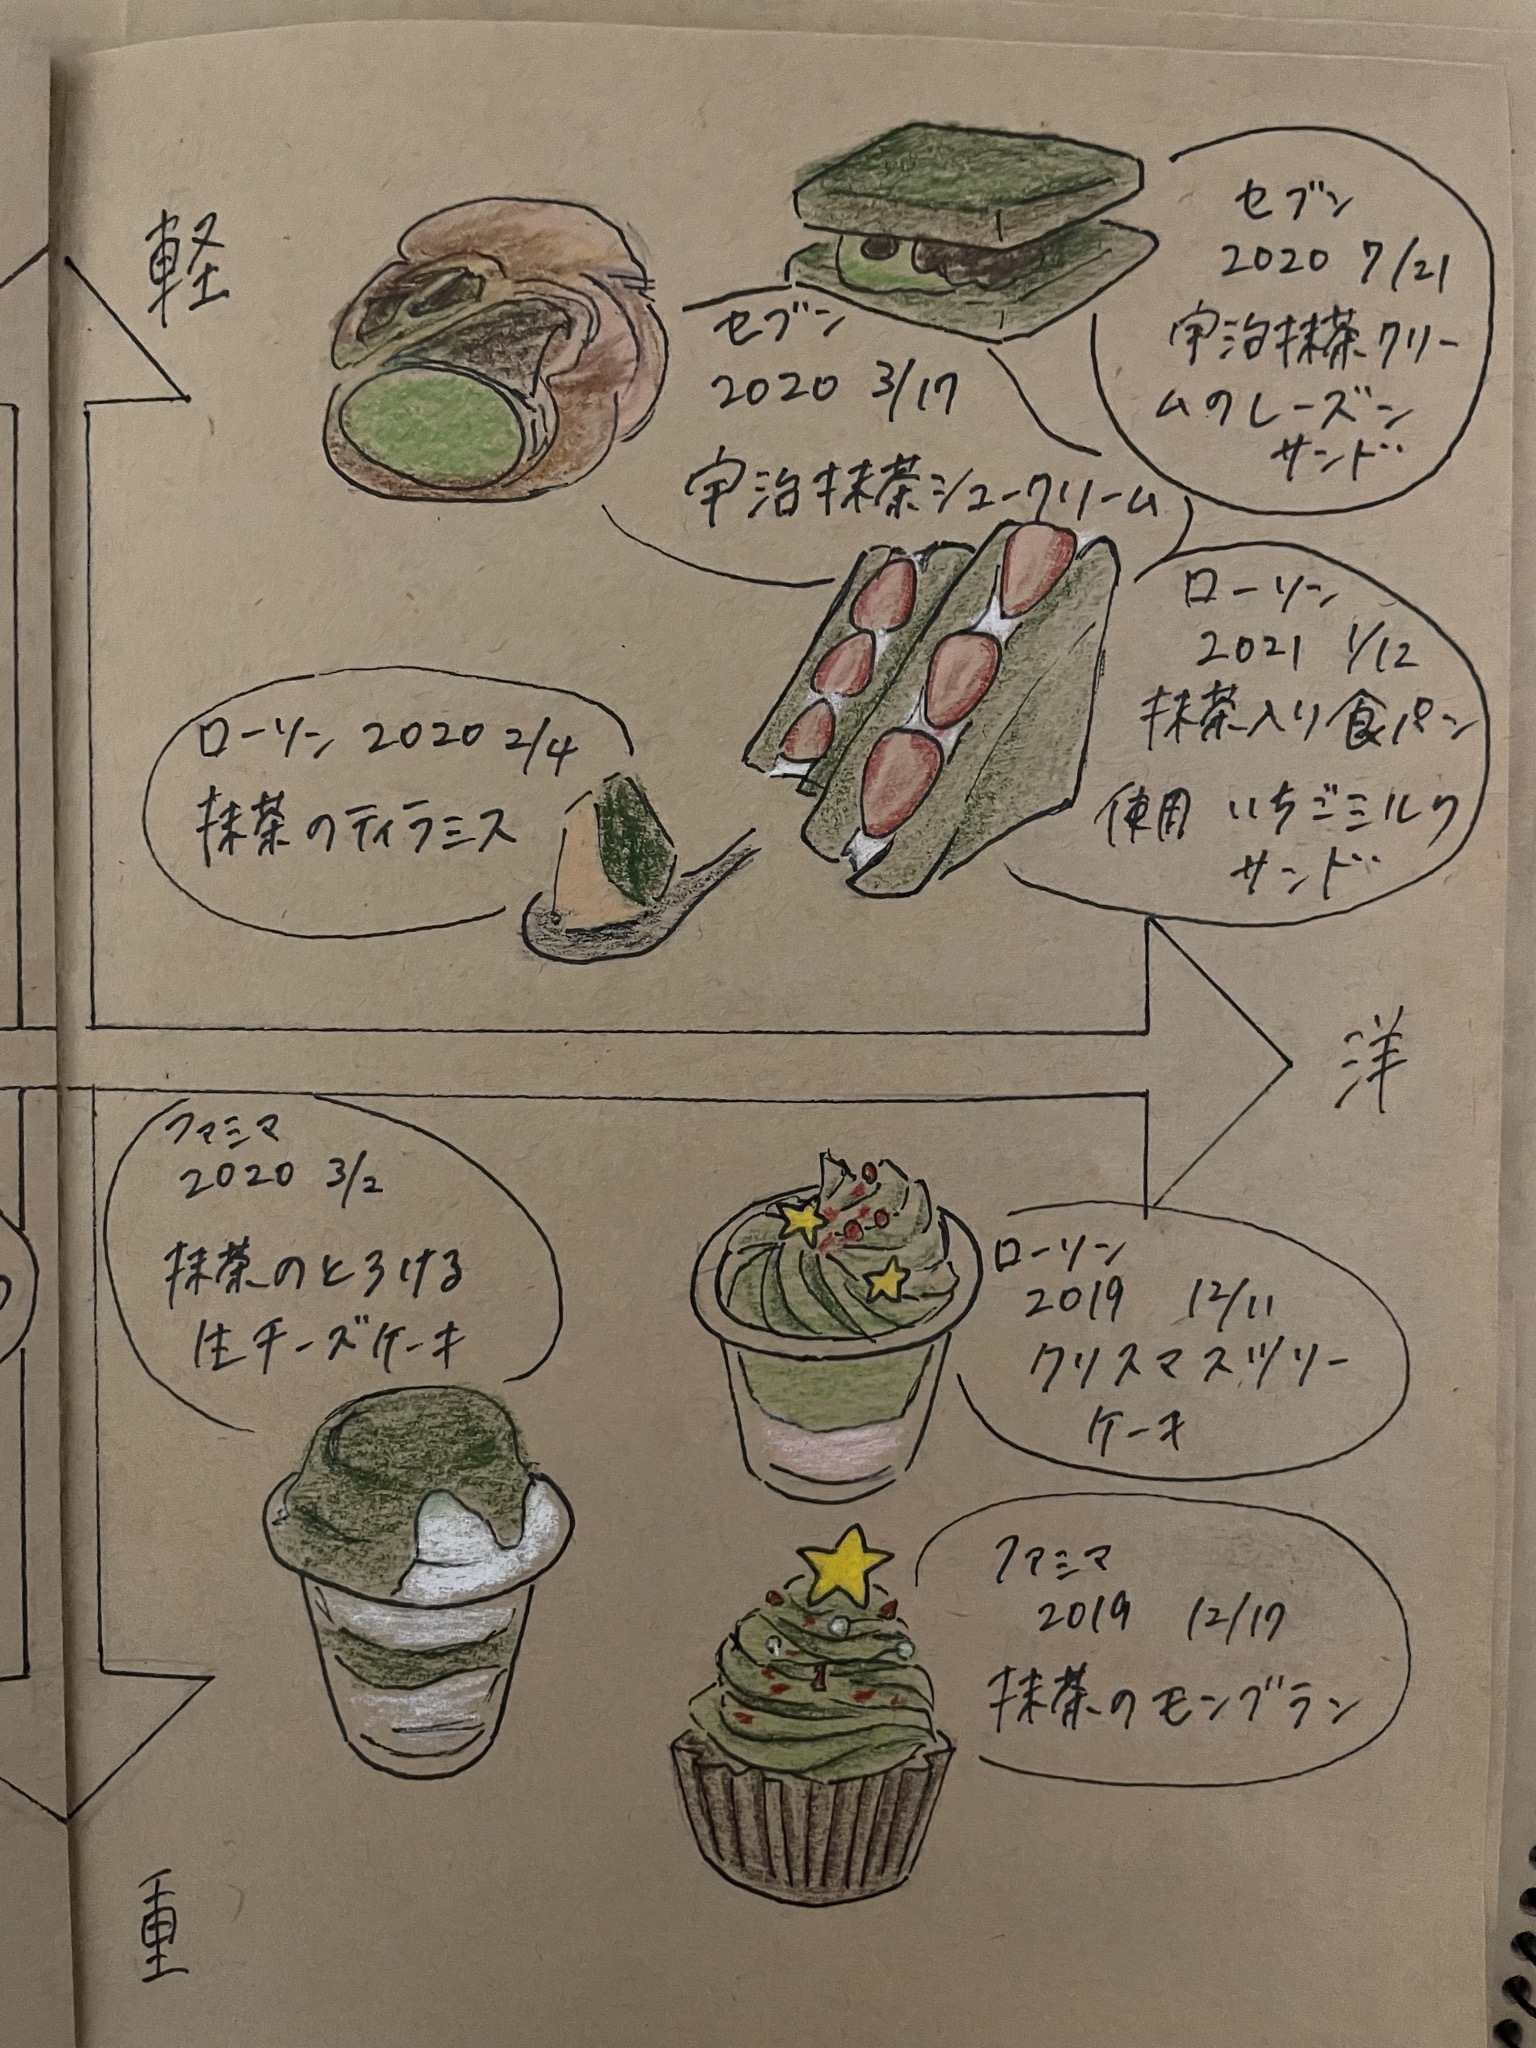 軽
セブン
2020 7/21
宇治抹茶クリー
ムのレーズン
サンド
セブン
2020 3/17
宇治抹茶シュークリーム
ローソン
2021 1/12
抹茶入り食パン
使用 いちごミルク
サンド
ローソン 2020 2/4
抹茶のティラミス
洋
ファミマ
2020 3/2
抹茶のとろける
生チーズケーキ
ローソン
2019 12/11
クリスマスツリー
ケーキ
ファミマ
2019 12/17
抹茶のモンブラン
重